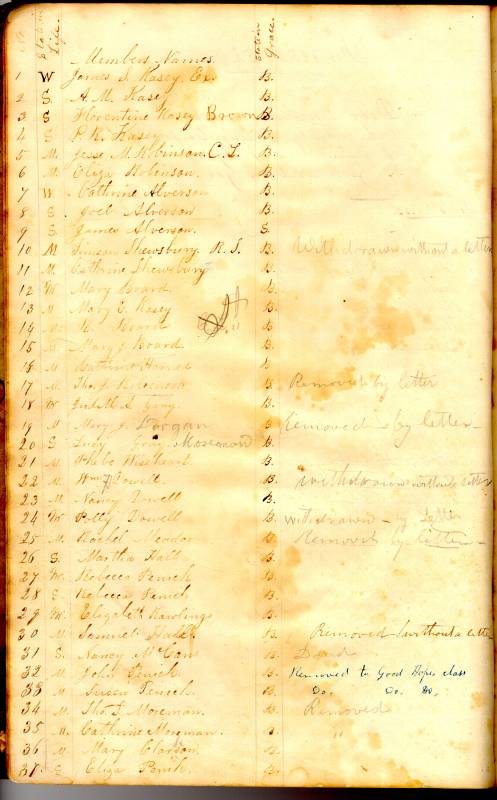 No. State in Life Members Names. Station Grace
1 W James S. Kasey Ex. B.
2 S. A. M. Kasey B.
3 S Florentine Kasey Brown B.
4 S P. K. Kasey B.
5 M. Jesse M. Robinson. C. L. B.
6 M. Eliza Robinson. B.
7 W. Cathrine Alverson B.
8 S. Joel Alverson B.
9 S James Alverson. S.
10 M Shewsbury R. S. B. Withdrawn without a letter
11 M. Cathrine Shewsbury B.
12 W. Mary Board B.
13 M. Mary E. Kasey B.
14 Board B.
15 M. Mary J. Board B.
16 M. Cathrine B.
17 M. Thos. J. B. Removed by letter
18 W Judith A. Gray B.
19 M. Mary J. Dorgan B. Removed by letter
20 S Lucy Gray Moreman B.
21 M. Phebe B.
22 M. Wm Dowell B. withdrawn without letter
23 M. Nancy Dowell B.
24 W. Polly Dowell B. withdrawn by Letter
25 M. Rachel Meador B. Removed by letter
26 S. Martha Hall B.
27 W. Rebecca Penick B.
28 S. Rebecca Penick B.
29 W. Elizabeth Rawlings B.
30 M. Hall B. Removed without a letter
31 S. Nancy McCan B. Dead
32 M. John Penick B. Removed to Good Hope class
33 M. Susan Penick B. Do. Do. Do.
34 M. Tho. J. Moreman. B. Removed
35 M. Cathrine Moreman. B. "
36 M. Mary Clarson B.
37 S. Eliza Penick B.